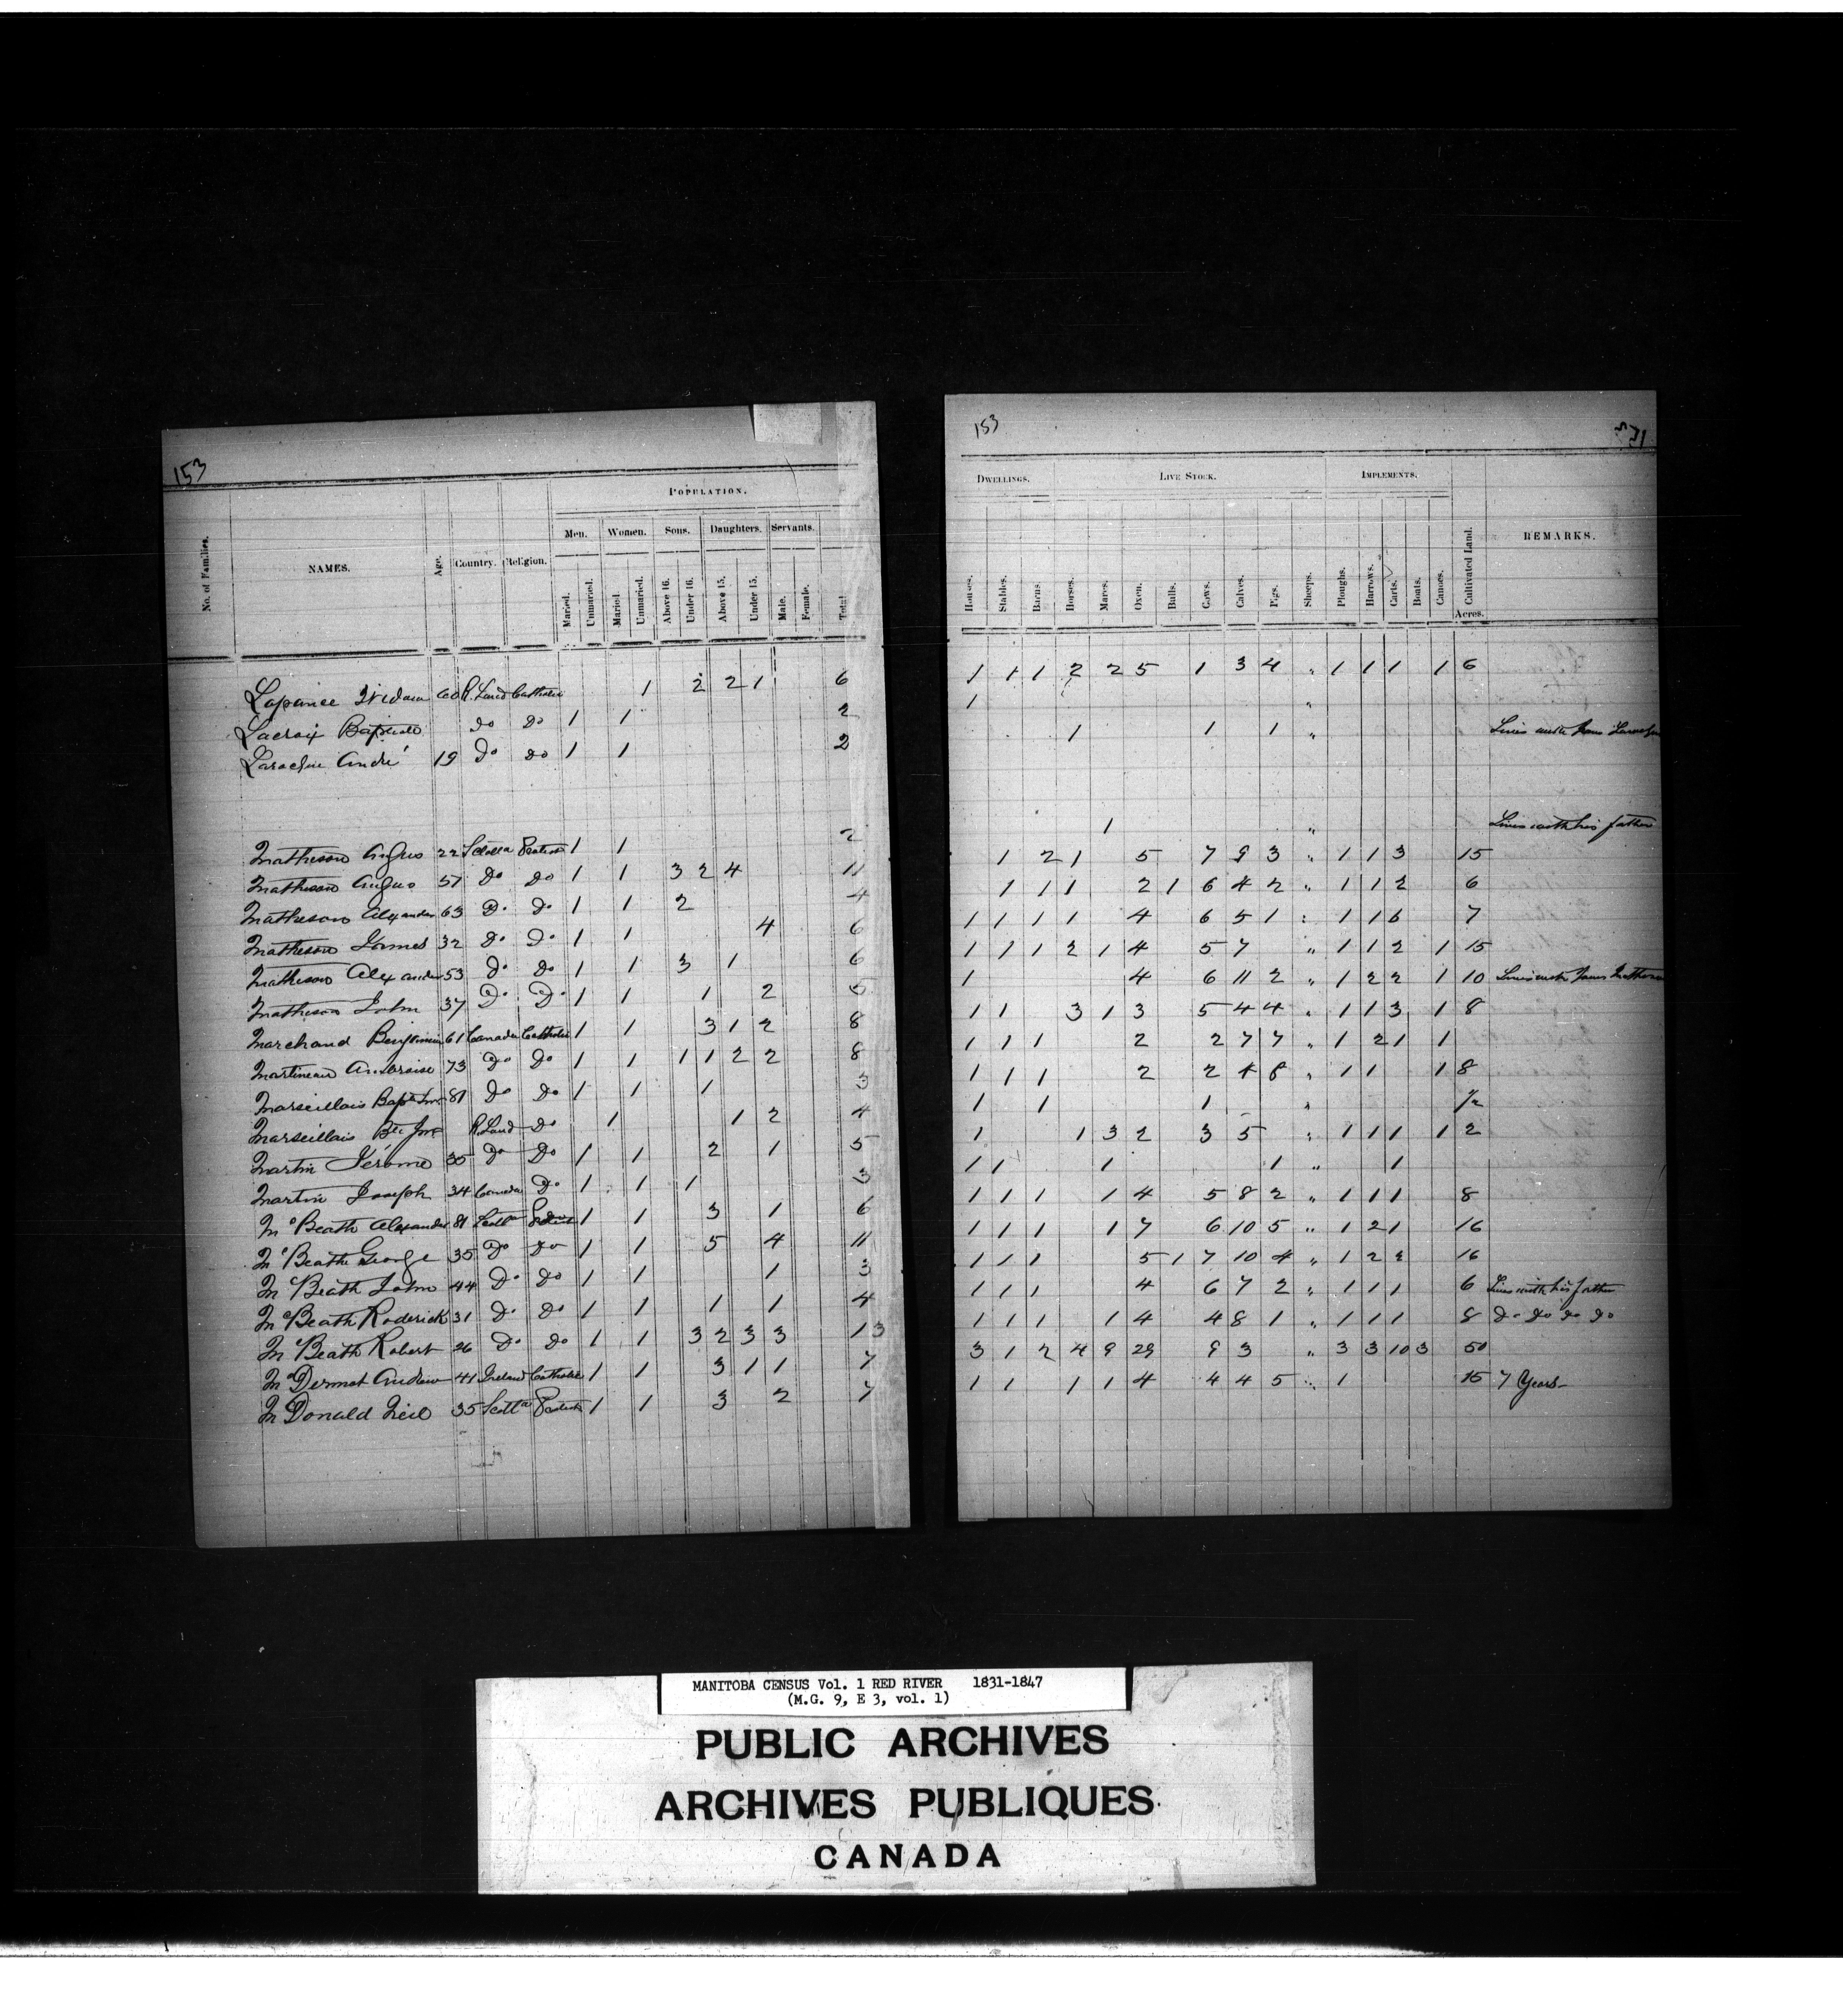 153
POPULATION.
No. of Families.
NAMES.
Age.
Country.
Religion.
Men.
Women.
Sons.
Daughters.
Servants.
Maried.
Unmaried.
Maried.
Unmaried.
Above 16.
Under 16.
Above 15.
Under 15.
Male.
Female.
Total
60 R. Land Catholic 1 2 2 1 6
Lacroix Baptiste do do 1 1 2
Laroche André 19 do do 1 1 2
Matheson Angus 22 1 1 2
Matheson Angus 57 do do 1 1 3 2 4 11
Matheson Alexander 63 Do Do 1 1 2 4
Matheson James 32 Do Do 1 1 4 6
Matheson Alexander 53 do do 1 1 3 1 6
Matheson John 37 Do Do 1 1 1 2 5
Marchand Benjamin 61 Canada Catholic 1 1 3 1 2 8
Martineau Ambroise 73 Do Do 1 1 1 1 2 2 8
Marseillais 81 Do Do 1 1 1 3
Marseillais R. Land Do 1 1 2 4
Martin Jérome 35 Do Do 1 1 2 1 5
Martin Joseph 34 Canada Do 1 1 1 3
McBeath Alexander 81 1 1 3 1 6
McBeath George 35 Do Do 1 1 5 4 11
McBeath John 44 Do Do 1 1 1 3
McBeath Roderick 31 Do Do 1 1 1 1 4
McBeath Robert 26 Do Do 1 1 3 2 3 3 13
McDermot Andrew 41 Ireland Catholic 1 1 3 1 1 7
McDonald Neil 35 1 1 3 2 7
153
DWELLINGS.
LIVE STOCK.
IMPLEMENTS.
Houses.
Stables.
Barns.
Horses.
Mares.
Oxen.
Bulls.
Cows.
Calves.
Pigs.
Sheeps.
Ploughs.
Harrows.
Carts.
Boats.
Canoes.
Cultivated Land.
Acres.
REMARKS.
1 1 1 2 2 5 1 3 4 " 1 1 1 1 6
1 "
1 1 1 " Lives with
1 " Lives with his father
1 2 1 5 7 9 3 " 1 1 3 15
1 1 1 2 1 6 4 2 " 1 1 2 6
1 1 1 1 4 6 5 1 " 1 1 6 7
1 1 1 2 1 4 5 7 " 1 1 2 1 15
1 4 6 11 2 " 1 2 2 1 10 Lives with James Matheson
1 1 3 1 3 5 4 4 " 1 1 3 1 8
1 1 1 2 2 7 7 " 1 2 1 1
1 1 1 2 2 4 8 " 1 1 1 8
1 1 1 " 1/2
1 1 3 2 3 5 " 1 1 1 1 2
1 1 1 1 " 1
1 1 1 1 4 5 8 2 " 1 1 1 8
1 1 1 1 7 6 10 5 " 1 2 1 16
1 1 1 5 1 7 10 4 " 1 2 2 16
1 1 1 4 6 7 2 " 1 1 1 6 Lives with his father
1 1 1 1 4 4 8 1 " 1 1 1 8 Do Do Do Do
3 1 2 4 9 29 9 3 " 3 3 10 3 50
1 1 1 1 4 4 4 5 " 1 15 7 Years
MANITOBA CENSUS Vol. 1 RED RIVER 1831-1847
(M.G. 9, E 3, vol. 1)
PUBLIC ARCHIVES
ARCHIVES PUBLIQUES
CANADA